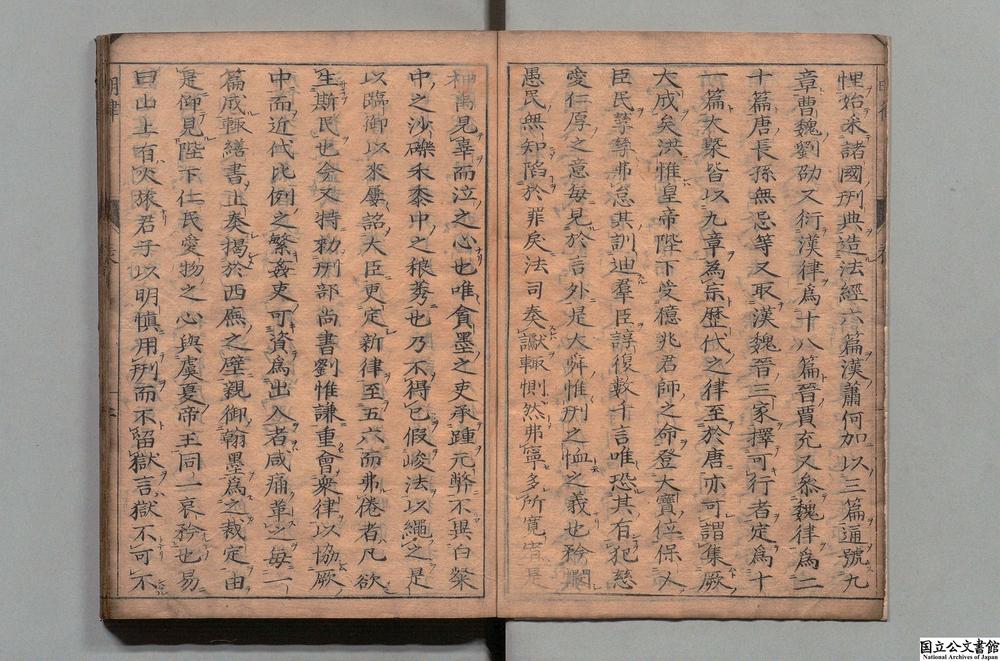 悝始采諸國刑典造法經六篇漢蕭何加以三篇通號九
章曹魏劉劭又衍漢律為十八篇晉賈充又參魏律為二
十篇唐長孫無忌等又取漢魏晉三家擇可行者定為十
二篇大槩皆以九章為宗歷代之律至於唐亦可謂集厥
大成矣洪惟皇帝陛下受億兆君師之命登大寶位保乂
臣民孳孳弗怠其訓迪羣臣諄復數千言唯恐其有犯慈
愛仁厚之意每見於言外是大舜惟刑之恤之義也矜閔
愚民無知陷於罪戾法司奏讞輒惻然弗寧多所寬宥是
神禹見辜而泣之心也唯貪墨之吏承踵元弊不異白粲
中之沙礫禾黍中之稂莠也乃不得已假峻法以繩之是
以臨御以來屢詔大臣更定新律至五六而弗倦者凡欲
生斯民也今又特勑刑部尚書劉惟謙重會衆律以協厥
中而近代比例之繁姦吏可資為出入者咸痛革之每一
篇成輒繕書上奏揭於西廡之壁親御翰墨為之裁定由
是仰見陛下仁民愛物之心與虞夏帝王同一哀矜也易
曰山上有火旅君子以明慎用刑而不留獄言獄不可不
明律
国立公文書館
National Archives of Japan